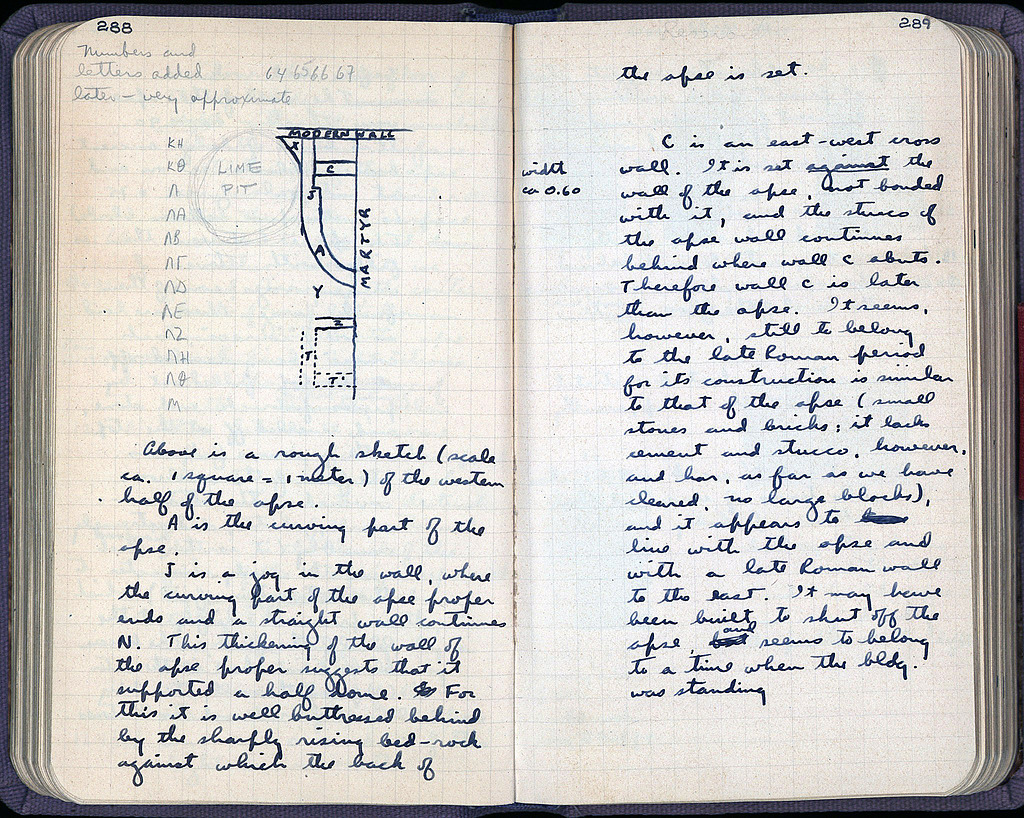 288
Numbers and
letters added 64 65 66 67
later – very approximate
MODERN WALL
X
KH
KΘ LIME C
Λ PIT J
ΛA
ΛB MARTYR
ΛΓ A
ΛΔ Y
ΛE
ΛZ Z
ΛH T
ΛΘ T'
M
Above is a rough sketch (scale
ca. 1 square = 1 meter) of the western
half of the apse.
A is the curving part of the
apse.
J is a jog in the wall, where
the curving part of the apse proper
ends and a straight wall continues
N. This thickening of the wall of
the apse proper suggests that it
supported a half dome. For
this it is well buttressed behind
by the sharply rising bed-rock
against which the back of
289
the apse is set.
C is an east-west cross
width wall. It is set against the
ca 0.60 wall of the apse, not bonded
with it, and the stucco of
the apse wall continues
behind where wall C abuts.
Therefore wall C is later
than the apse. It seems,
however, still to belong
to the late Roman period
for its construction is similar
to that of the apse (small
stones and bricks; it lacks
cement and stucco, however,
and has, as far as we have
cleared, no large blocks),
and it appears to
line with the apse and
with a late Roman wall
to the east. It may have
been built to shut off the
apse, and seems to belong
to a time when the bldg.
was standing